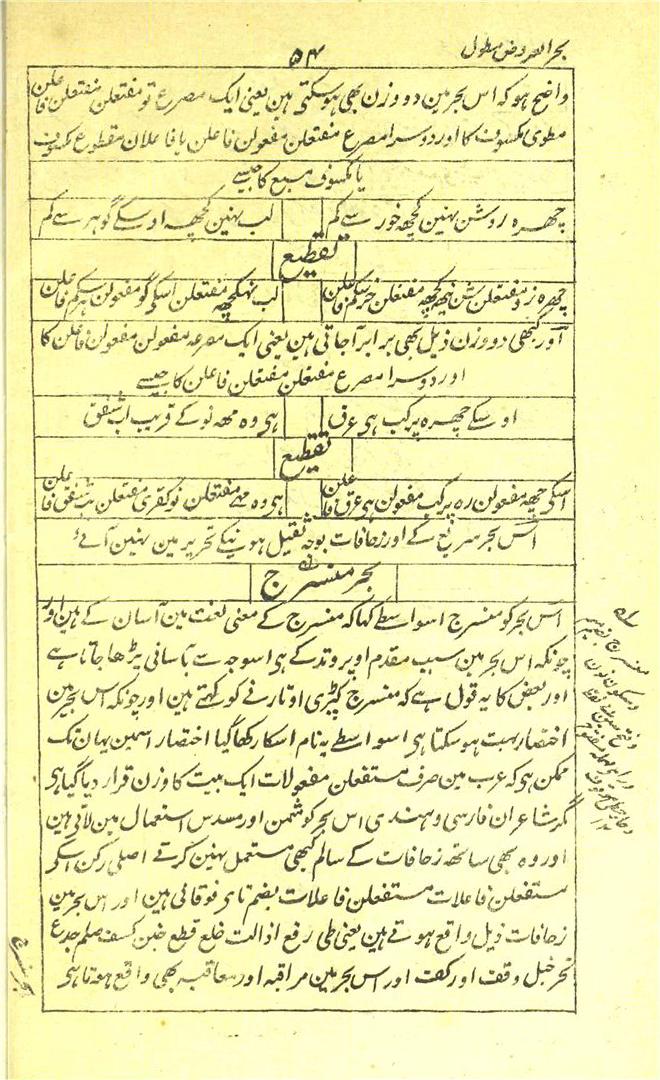 بحر العروض مطول
۵۴
واضح ہو کہ اس بحر مین دو وزن بھی ہو سکتی ہین یعنی ایک مصرع تو مفتعلن مفتعلن فاعلن
مطوی مکسوف کا اور دوسرا مصرع مفتعلن مفعولن فاعلن یا فاعلان مقطوع مکسوف
یا مکسوف مسبع کا جیسے
چھرہ روشن نہین کچھ خور سے کم
لب نہین کچھہ اوسکے گوہر سے کم
تقطیع
چھرہ رو مفتعلن شن نہیکچھہ مفتعلن خرسکم فاعلن
لب نہکچھہ مفتعلن اسکی گو مفعولن ہرسکم فاعلن
اور کبھی دو وزن ذیل بھی برابر آجاتی ہین یعنی ایک مصرعہ مفعولن مفعولن فاعلن کا
اور دوسرا مصرع مفتعلن مفتعلن فاعلن کا جیسے
اوسکے چھرہ پر کب ہی عرق
ہی وہ مھہ نو کے قریب اب شفق
تقطیع
اسکی چھہ مفعولن رہ پر کب مفعولن ہی عرق فاعلن
ہی وہ مہے مفتعلن نو کقری مفتعلن بشفق فاعلن
اس بحر سریع کے اور زحافات بوجہ ثقیل ہونیکے تحریر مین نہین آئے
بحر منسرح
اس بحر کو منسرح اسواسطے کہا کہ منسرح کے معنی لغت مین آسان کے ہین اور
چونکہ اس بحر مین سبب مقدم اوپر وتد کے ہی اسوجہ سے بآسانی پڑھا جاتا ہے
اور بعض کا یہ قول ہے کہ منسرح کپڑی اوتارنے کو کہتے ہین اور چونکہ اس بحر مین
اختصار بہت ہو سکتا ہی اسواسطے یہ نام اسکا رکھا گیا اختصار اسمین یہان تک
ممکن ہی کہ عرب مین صرف مستفعلن مفعولات ایک بیت کا وزن قرار دیا گیا ہی
مگر شاعران فارسی وہندی اس بحر کو مثمن اور مسدس استعمال مین لاتی ہین
اور وہ بھی ساتھہ زحافات کے سالم کبھی مستعمل نہین کرتے اصلی رکن اسکی
مستفعلن فاعلات مستفعلن فاعلات بضم تای فوقانی ہین اور اس بحر مین
زحافات ذیل واقع ہوتے ہین یعنی طی رفع اذالت خلع قطع خبن کسف صلم جدع
نحر خبل وقف اور کف اور اس بحر مین مراقبہ اور معاقبہ بھی واقع ہوتا ہی
بحر منسرح